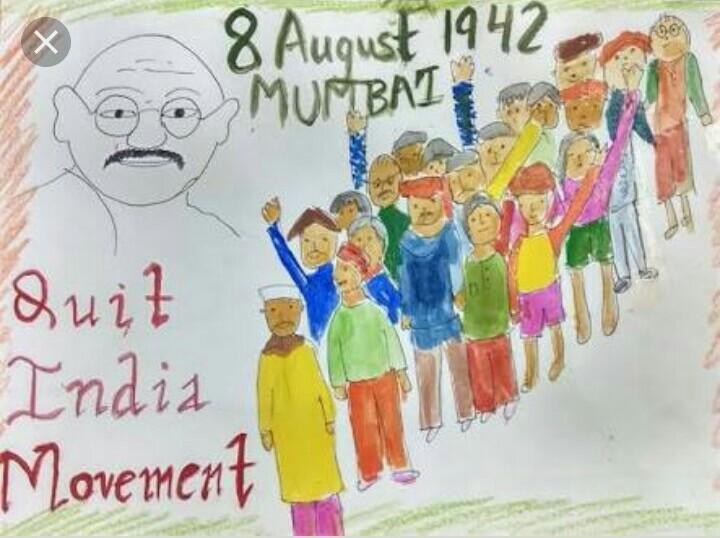 8 August 1942
MUMBAI
Quit
India
Movement